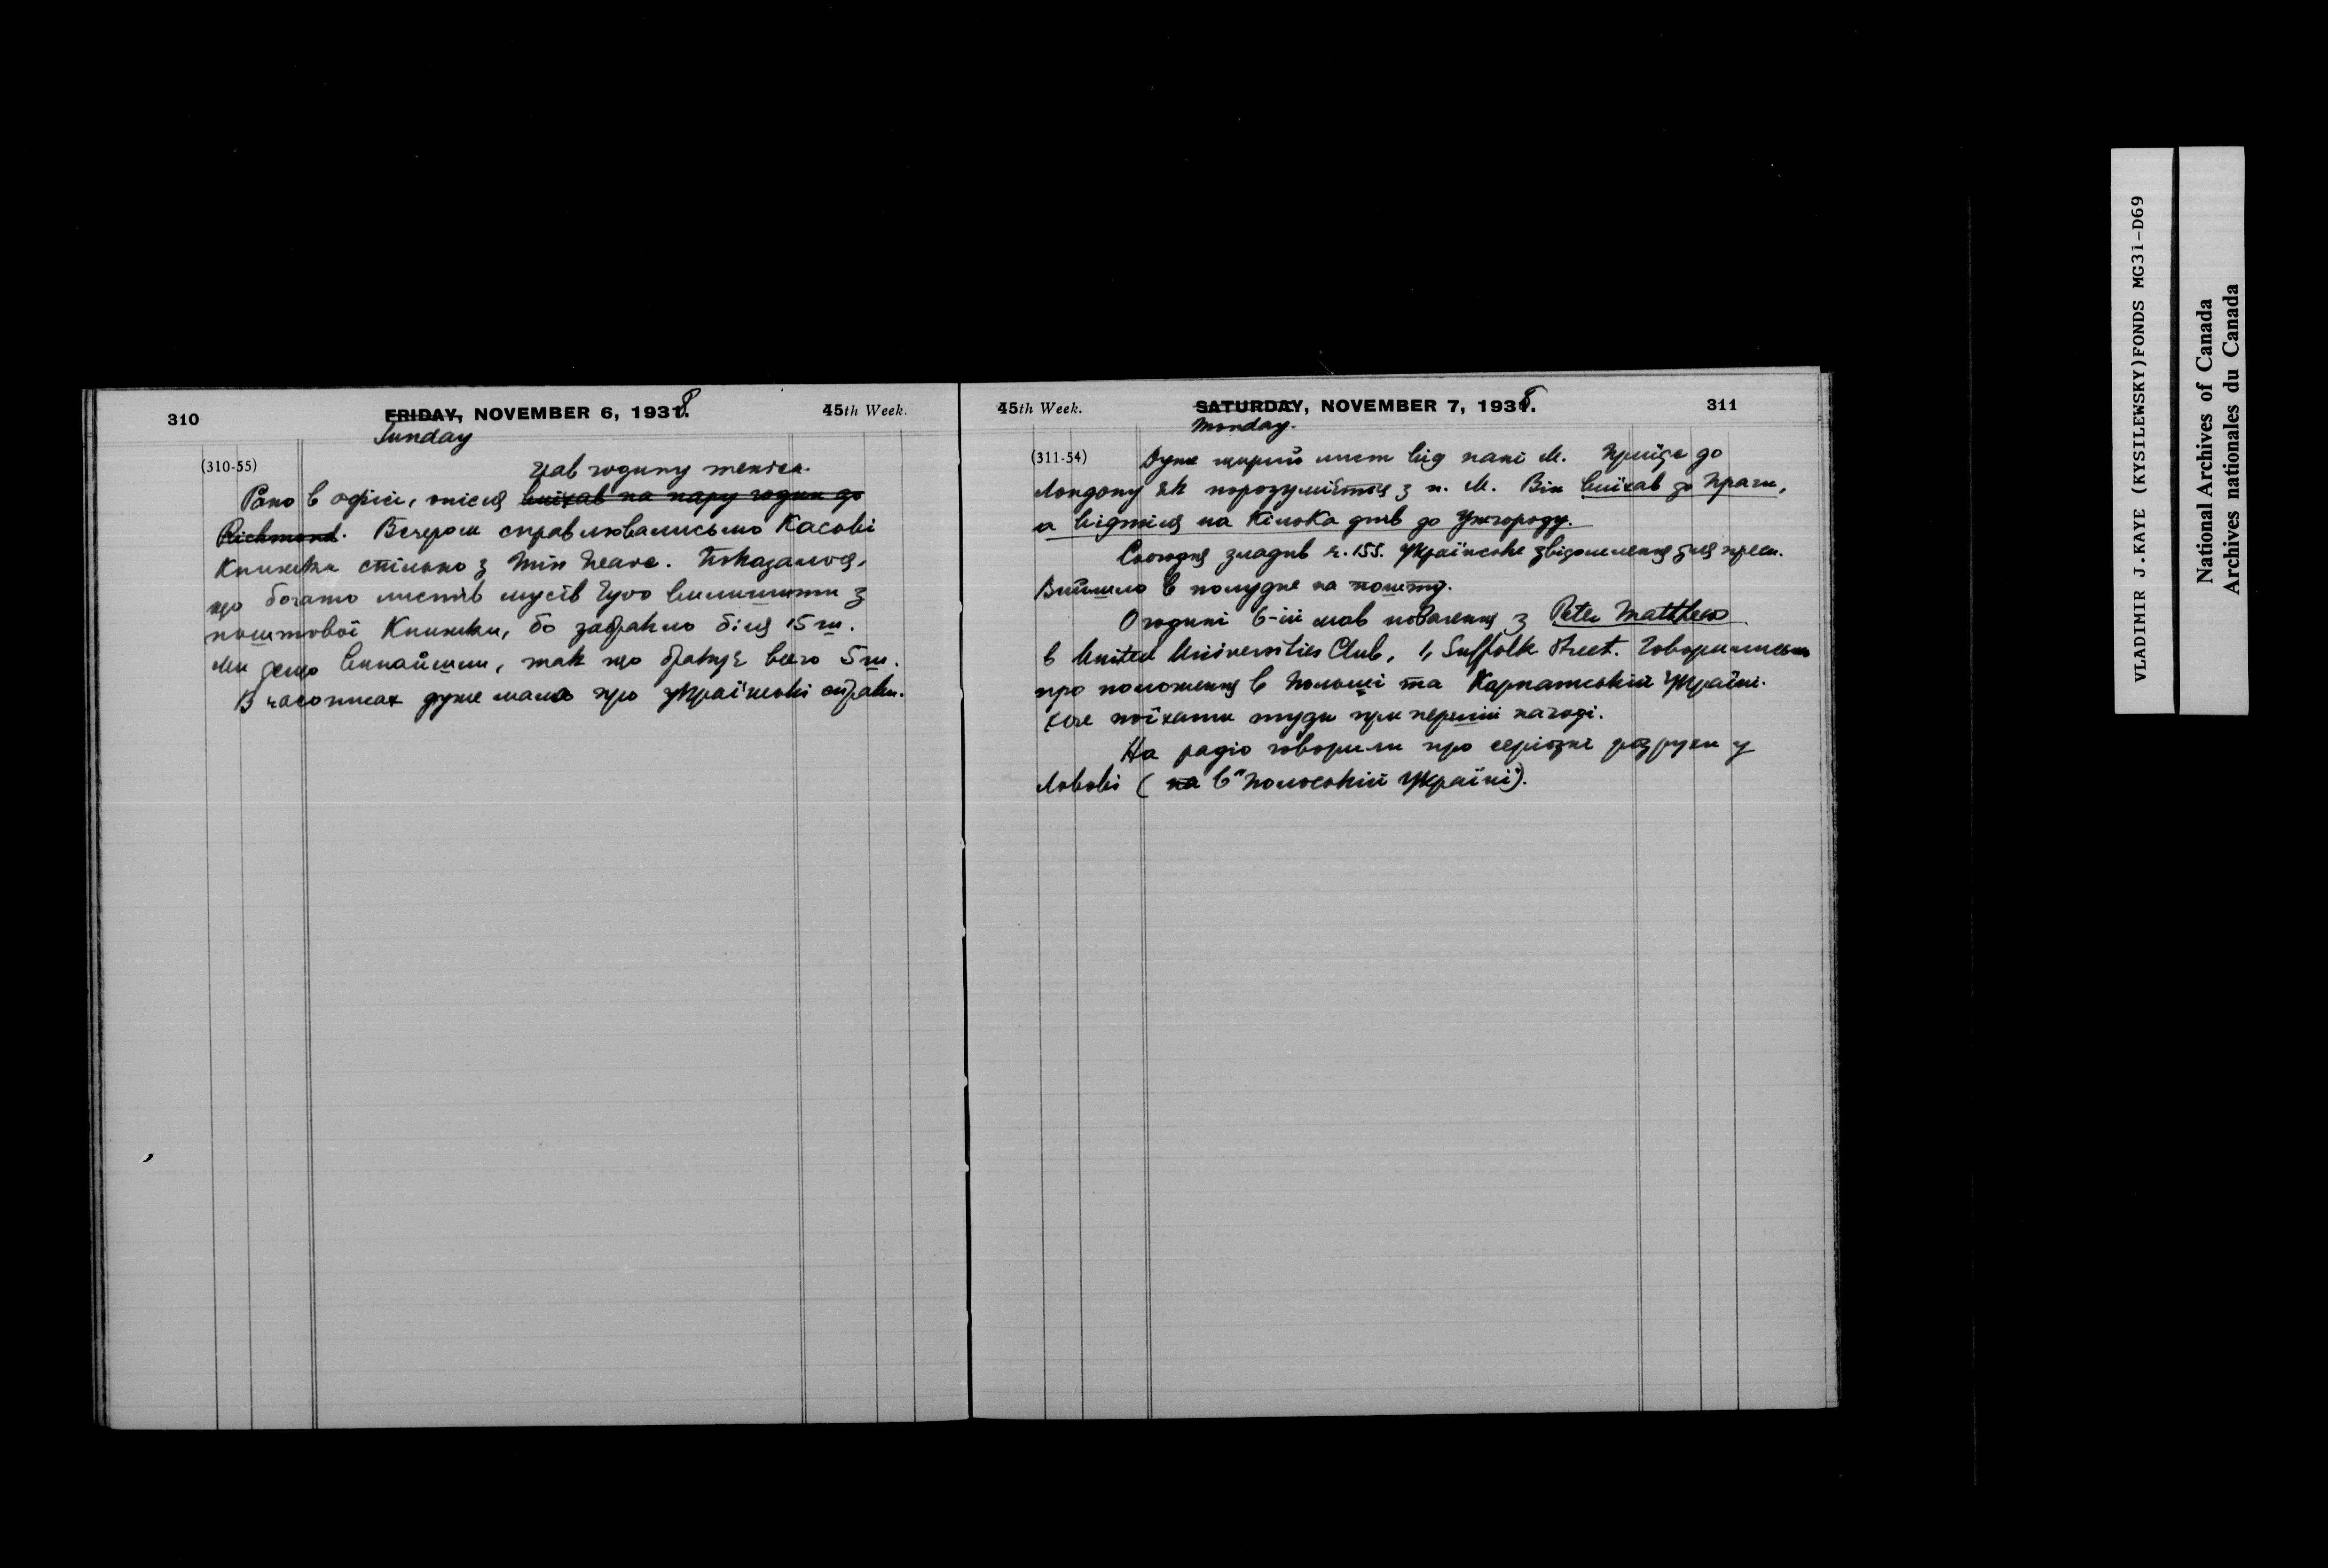 310
FRIDAY, NOVEMBER 6, 1938.
45th Week.
Sunday
(310-55)
грав годину теніса.
Рано в офісі, опісля виїхав на пару годин до
Richmond. Вечером справлювалисьмо касові
книжки спільно з Miss Neave. Показалося,
що богато листів мусів Гуго вилишити з
поштової книжки, бо забракло біля 15 ш.
Ми дещо винайшли, так що бракує всего 5 ш.
В часописах дуже мало про українські справи.
45th Week.
SATURDAY, NOVEMBER 7, 1938.
311
Monday.
(311-54)
Дуже щирий лист від пані М. Приїде до
Лондону як порозуміється з п. М. Він виїхав до Праги,
а відтіля на кілька днів до Ужгороду.
Сьогодня зладив ч. 155. Українське звідомлення для преси.
Вийшло в полудне на пошту.
О годині 6-ій мав побачення з Peter Matthews
в United Universities Club, 1, Suffolk Street. Говорилисьмо
про положення в Польщі та Карпатській Україні.
Хоче поїхати туди при першій нагоді.
На радіо говорили про серіозні розрухи у
Львові (на в "Польській Україні").
VLADIMIR J.KAYE (KYSILEWSKY)FONDS MG31-D69
National Archives of Canada
Archives nationales du Canada